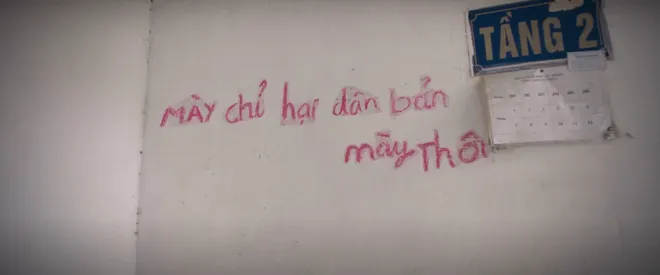 TẦNG 2
MÀY chỉ hại dân bản
mày Thôi